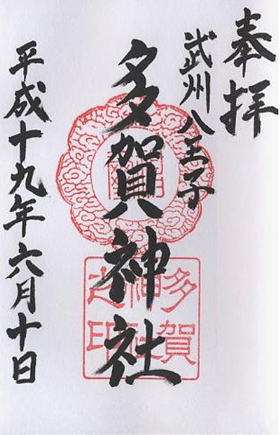 奉拝
武州八王子
多賀神社
平成十九年六月十日
多賀
神社
之印